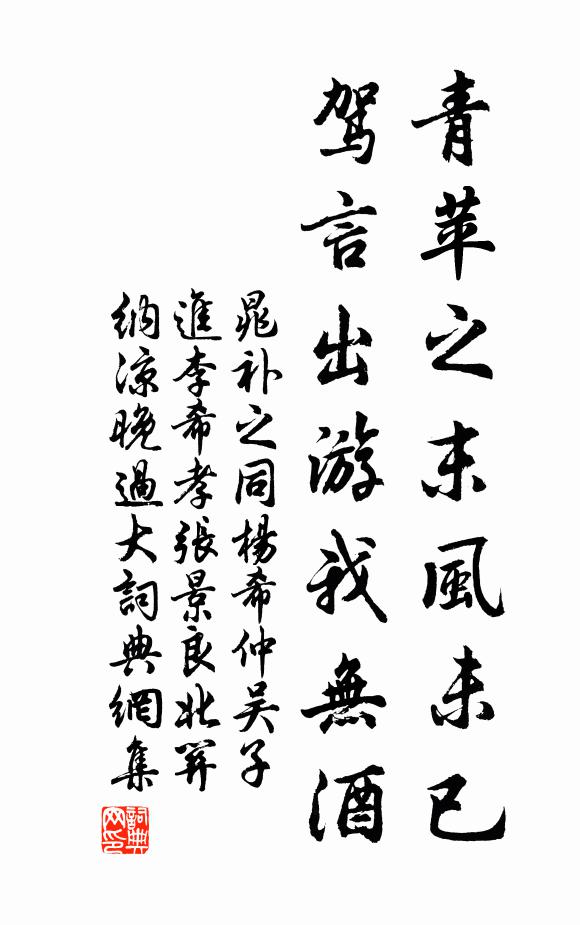 青苹之末風未已
驾言出游我無酒
晁补之同楊希仲吴子
進李希孝張景良北窗
纳凉晚過大詞典網集
詞典网印